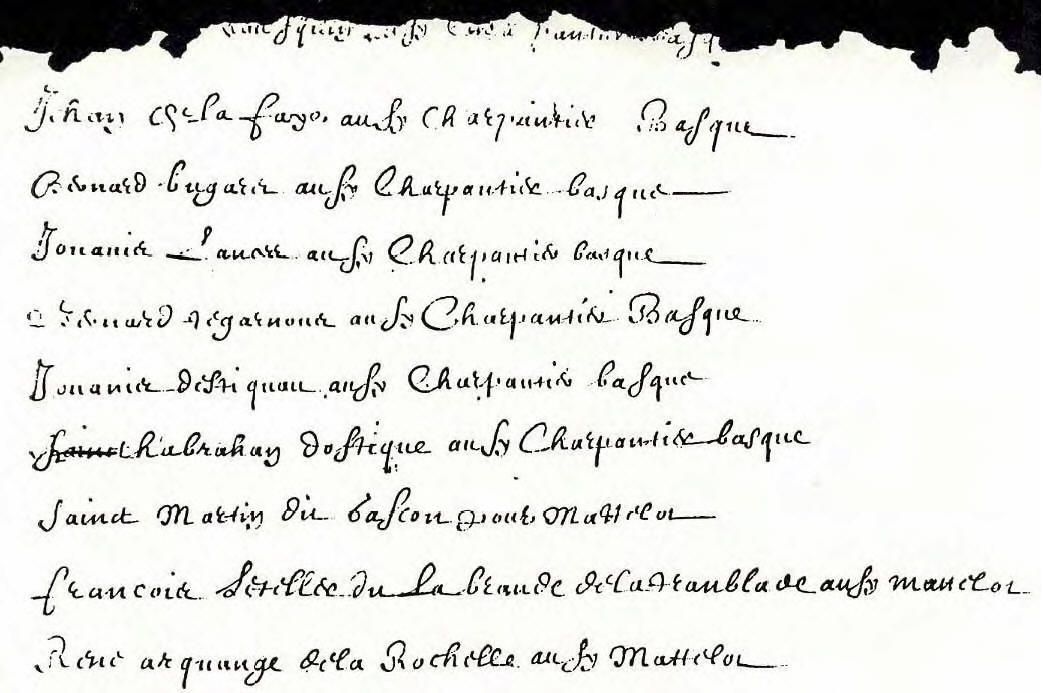 aussy
Jehan de la faye aussy Charpantier Basque
Bernard bugarer aussy Charpantier basque
Jouanis aussy Charpantier basque
Bernard aussy Charpantier Basque
Jouanis destiquau aussy Charpantier basque
habrahan dostique aussy Charpantier basque
Sainct Martin dit bascon pour Mattelot
francois dit La brande de la Tranblade aussy mattelot
René arquange de la Rochelle aussy Mattelot